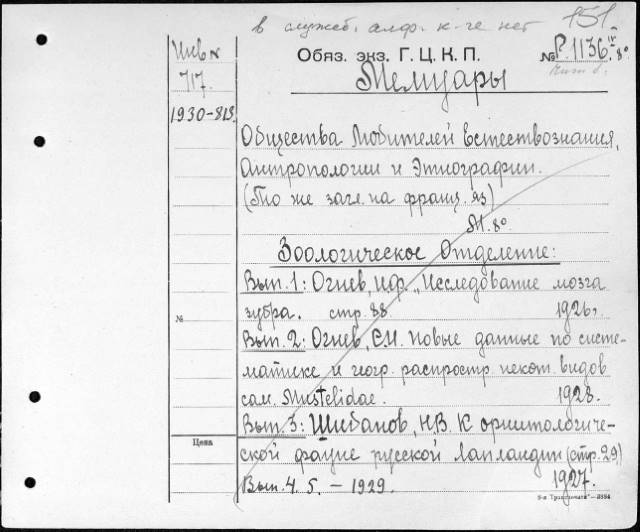 в служеб. алф. к-ге нет 151.
Инв №
717.
1930-813.
Обяз. экз. Г. Ц. К. П. № Р.1136 IV/8°
Мемуары
Общества Любителей Естествознания,
Антропологии и Этнографии.
(То же загл. на франц. яз)
М. 8°
Зоологическое Отделение:
Вып. 1: Огнев, И.Ф. „Исследование мозга
зубра. стр. 88 1926,
№
Вып. 2: Огнев, С.И. Новые данные по систе-
матике и геогр. распростр. некот. видов
сам. Mustelidae. 1928.
Вып. 3: Шибанов, Н.В. К орнитологиче-
Цена
ской фауне русской Лапландии (стр. 29)
Вып. 4. 5. – 1929. 1927.